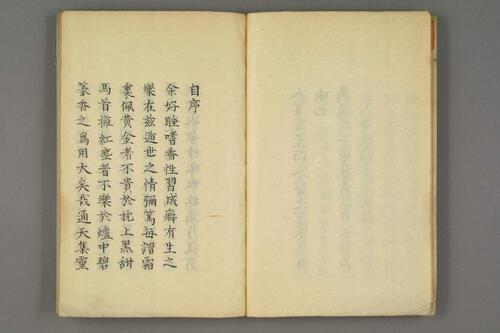 自序
余好睡嗜香性習成癖有生之
樂在茲遁世之情彌篤每謂霜
裏佩黃金者不貴於枕上黑甜
馬首擁紅塵者不樂於爐中碧
篆香之爲用大矣哉通天集靈